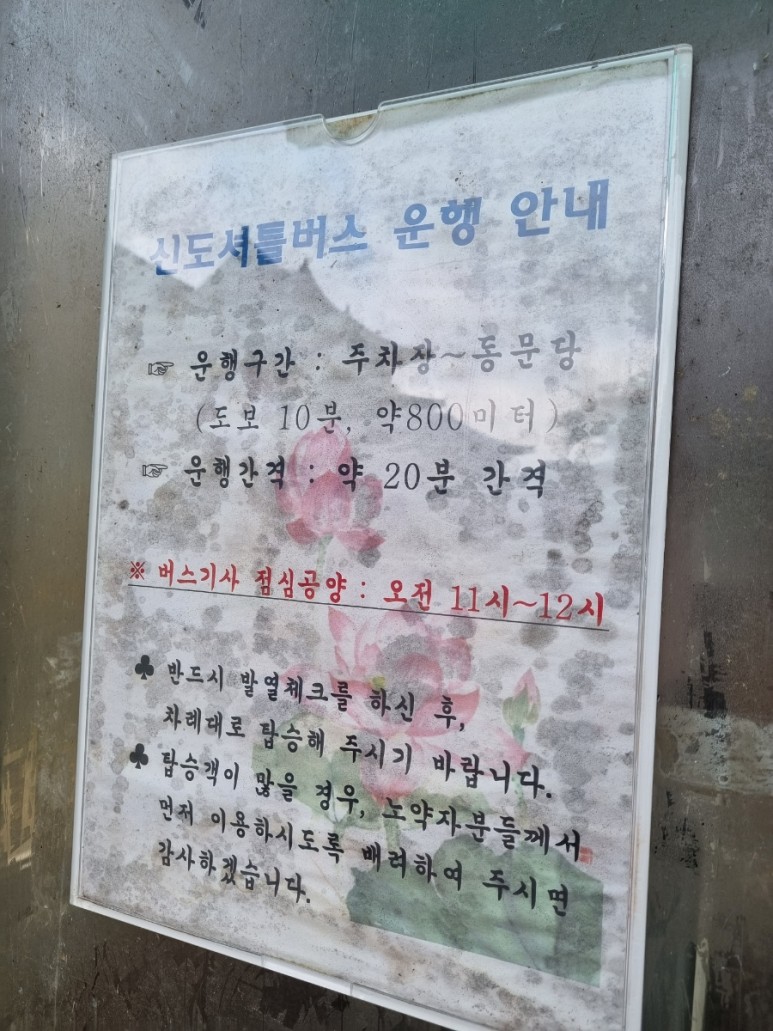 신도셔틀버스 운행 안내
☞ 운행구간 : 주차장~동문당
(도보 10분, 약800미터)
☞ 운행간격 : 약 20분 간격
※ 버스기사 점심공양 : 오전 11시~12시
♣ 반드시 발열체크를 하신 후,
차례대로 탑승해 주시기 바랍니다.
♣ 탑승객이 많을 경우, 노약자분들께서
먼저 이용하시도록 배려하여 주시면
감사하겠습니다.